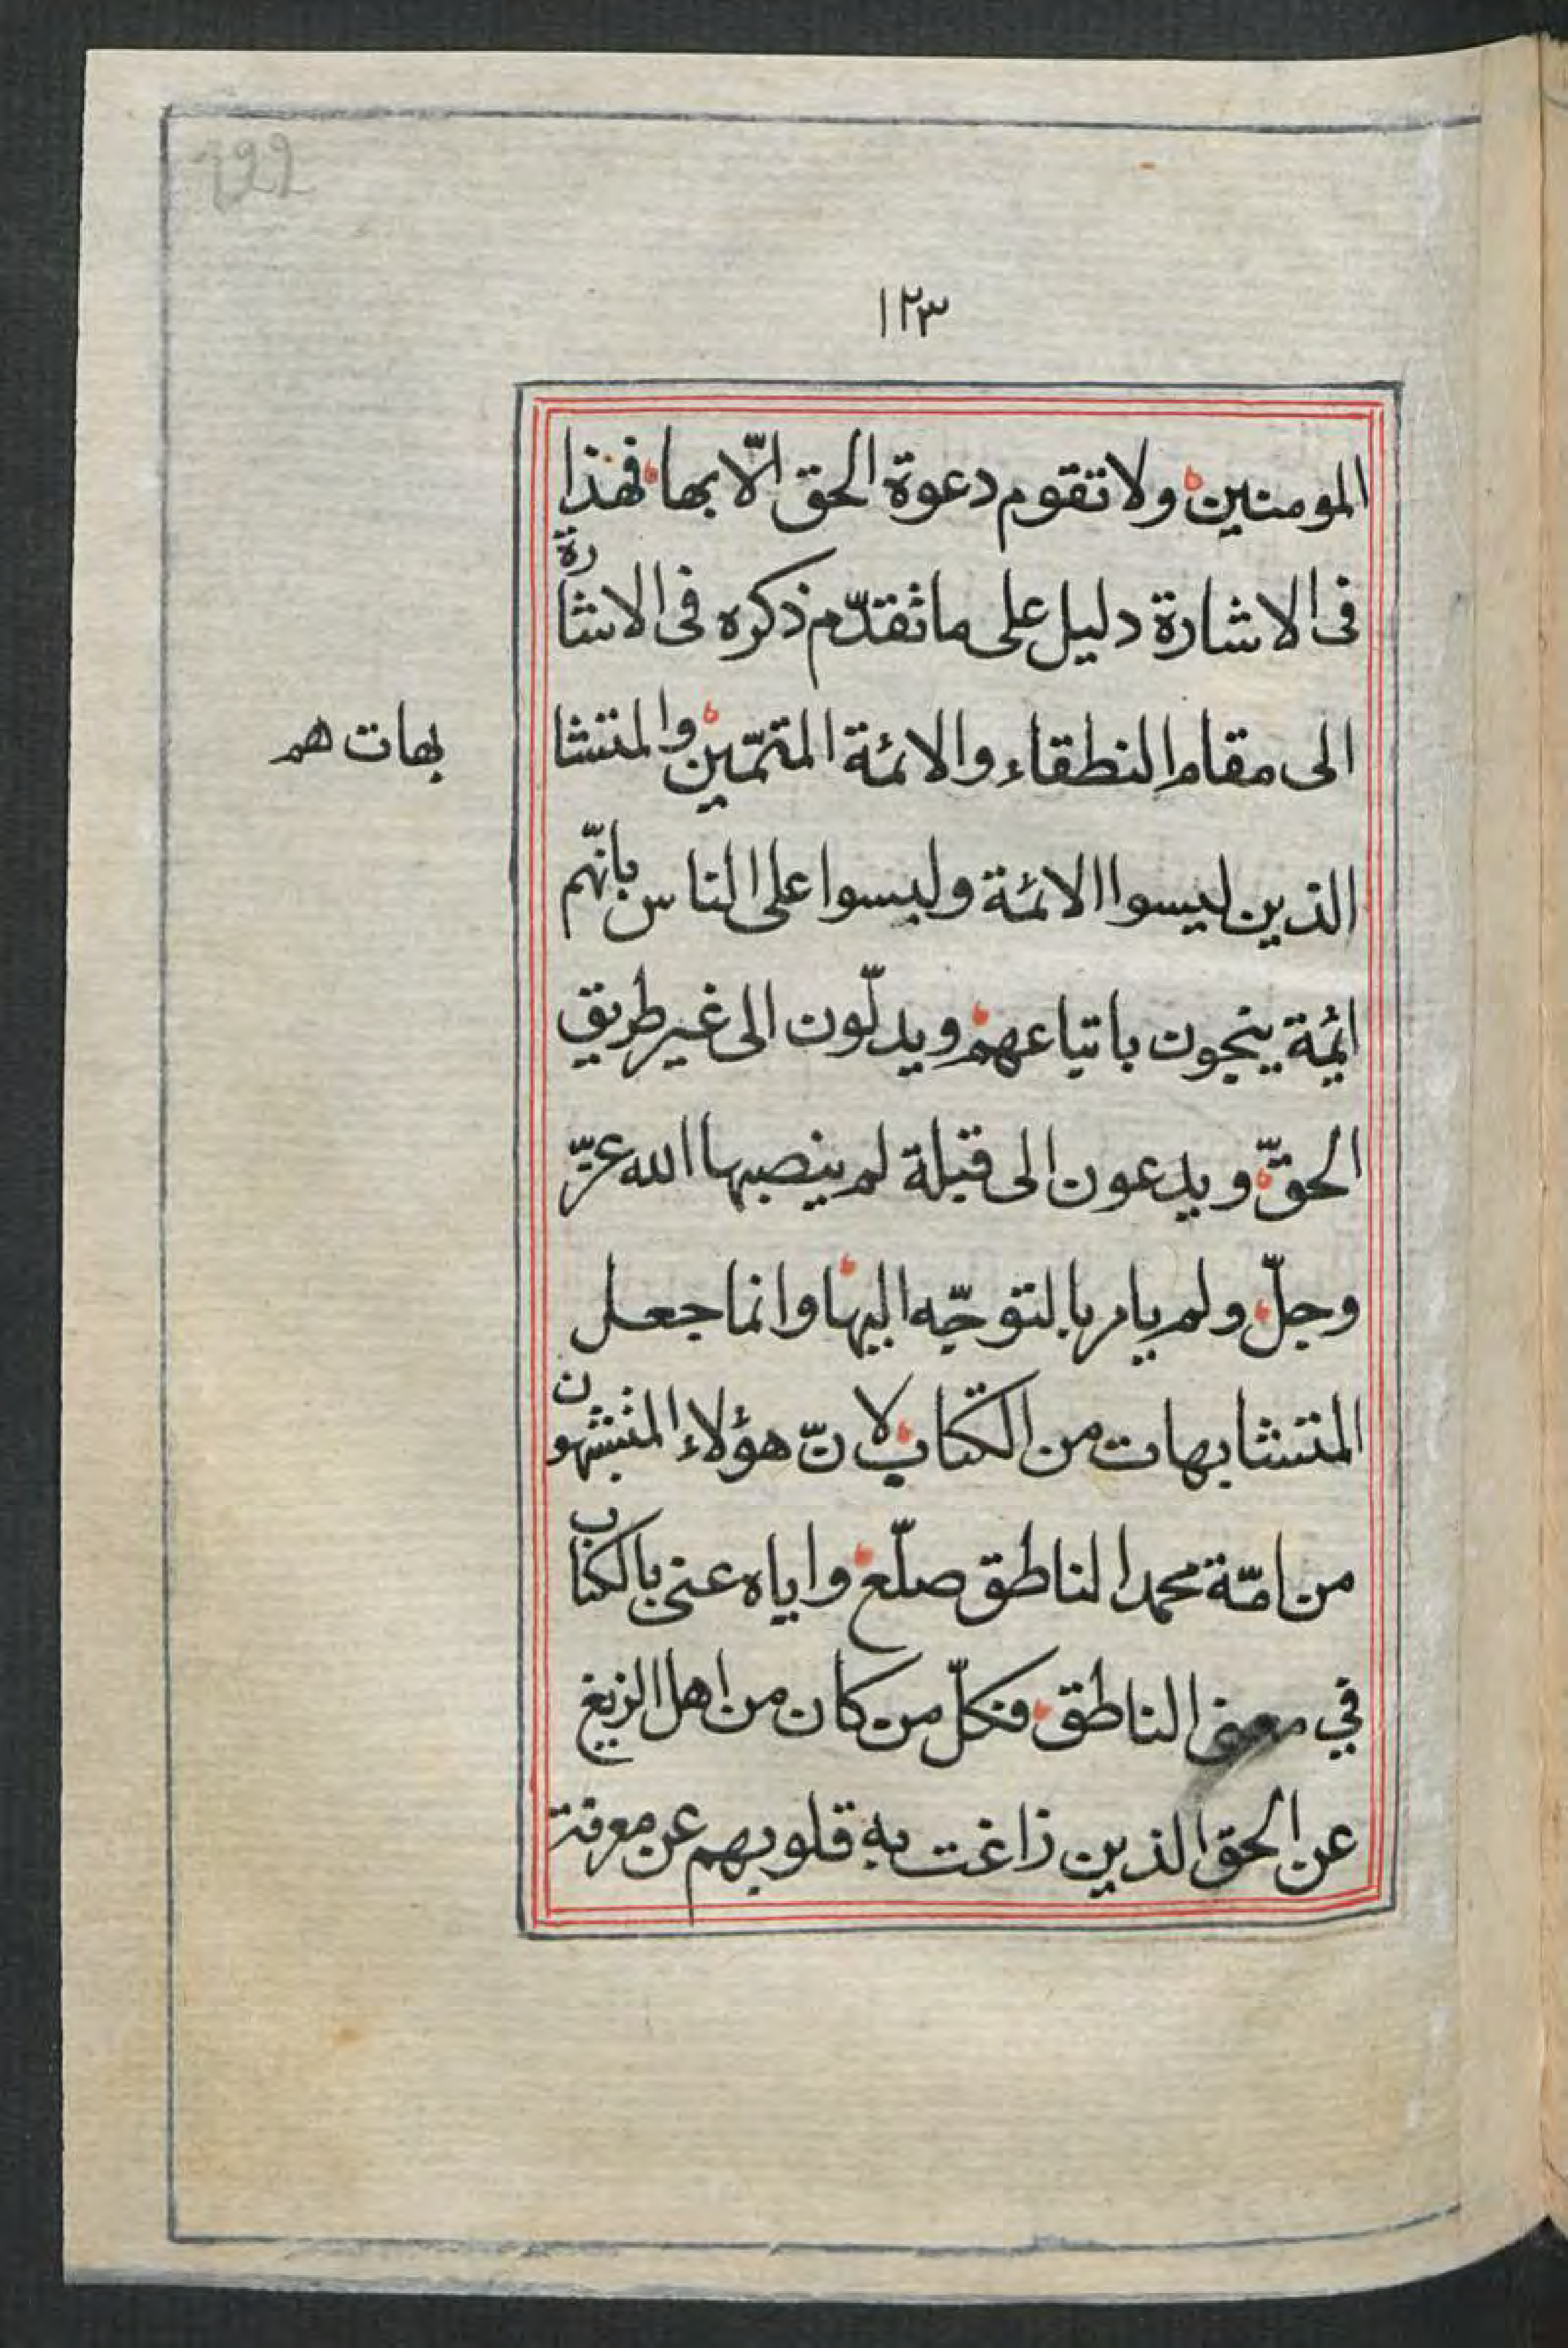 ١٢٣
المومنين ولا تقوم دعوة الحق الّا بها فهذا
فى الاشارة دليل على ما تقدّم ذكره فى الاشارة
الى مقام النطقاء والائمة المتمّين والمتشا
بهات هم
الذين ليسوا الائمة ولبسوا على الناس بانّهم
ائمة ينجون باتباعهم ويدلّون الى غير طريق
الحقّ ويدعون الى قبلة لم ينصبها الله عزّ
وجلّ ولم يامر بالتوجّه اليها وانما جعل
المتشابهات من الكتاب لانّ هؤلاء المتشبهون
من امّة محمد الناطق صلّع واياه عنى بالكتاب
في معنى الناطق فكلّ من كان من اهل الزيغ
عن الحق الذين زاغت به قلوبهم عن معرفة